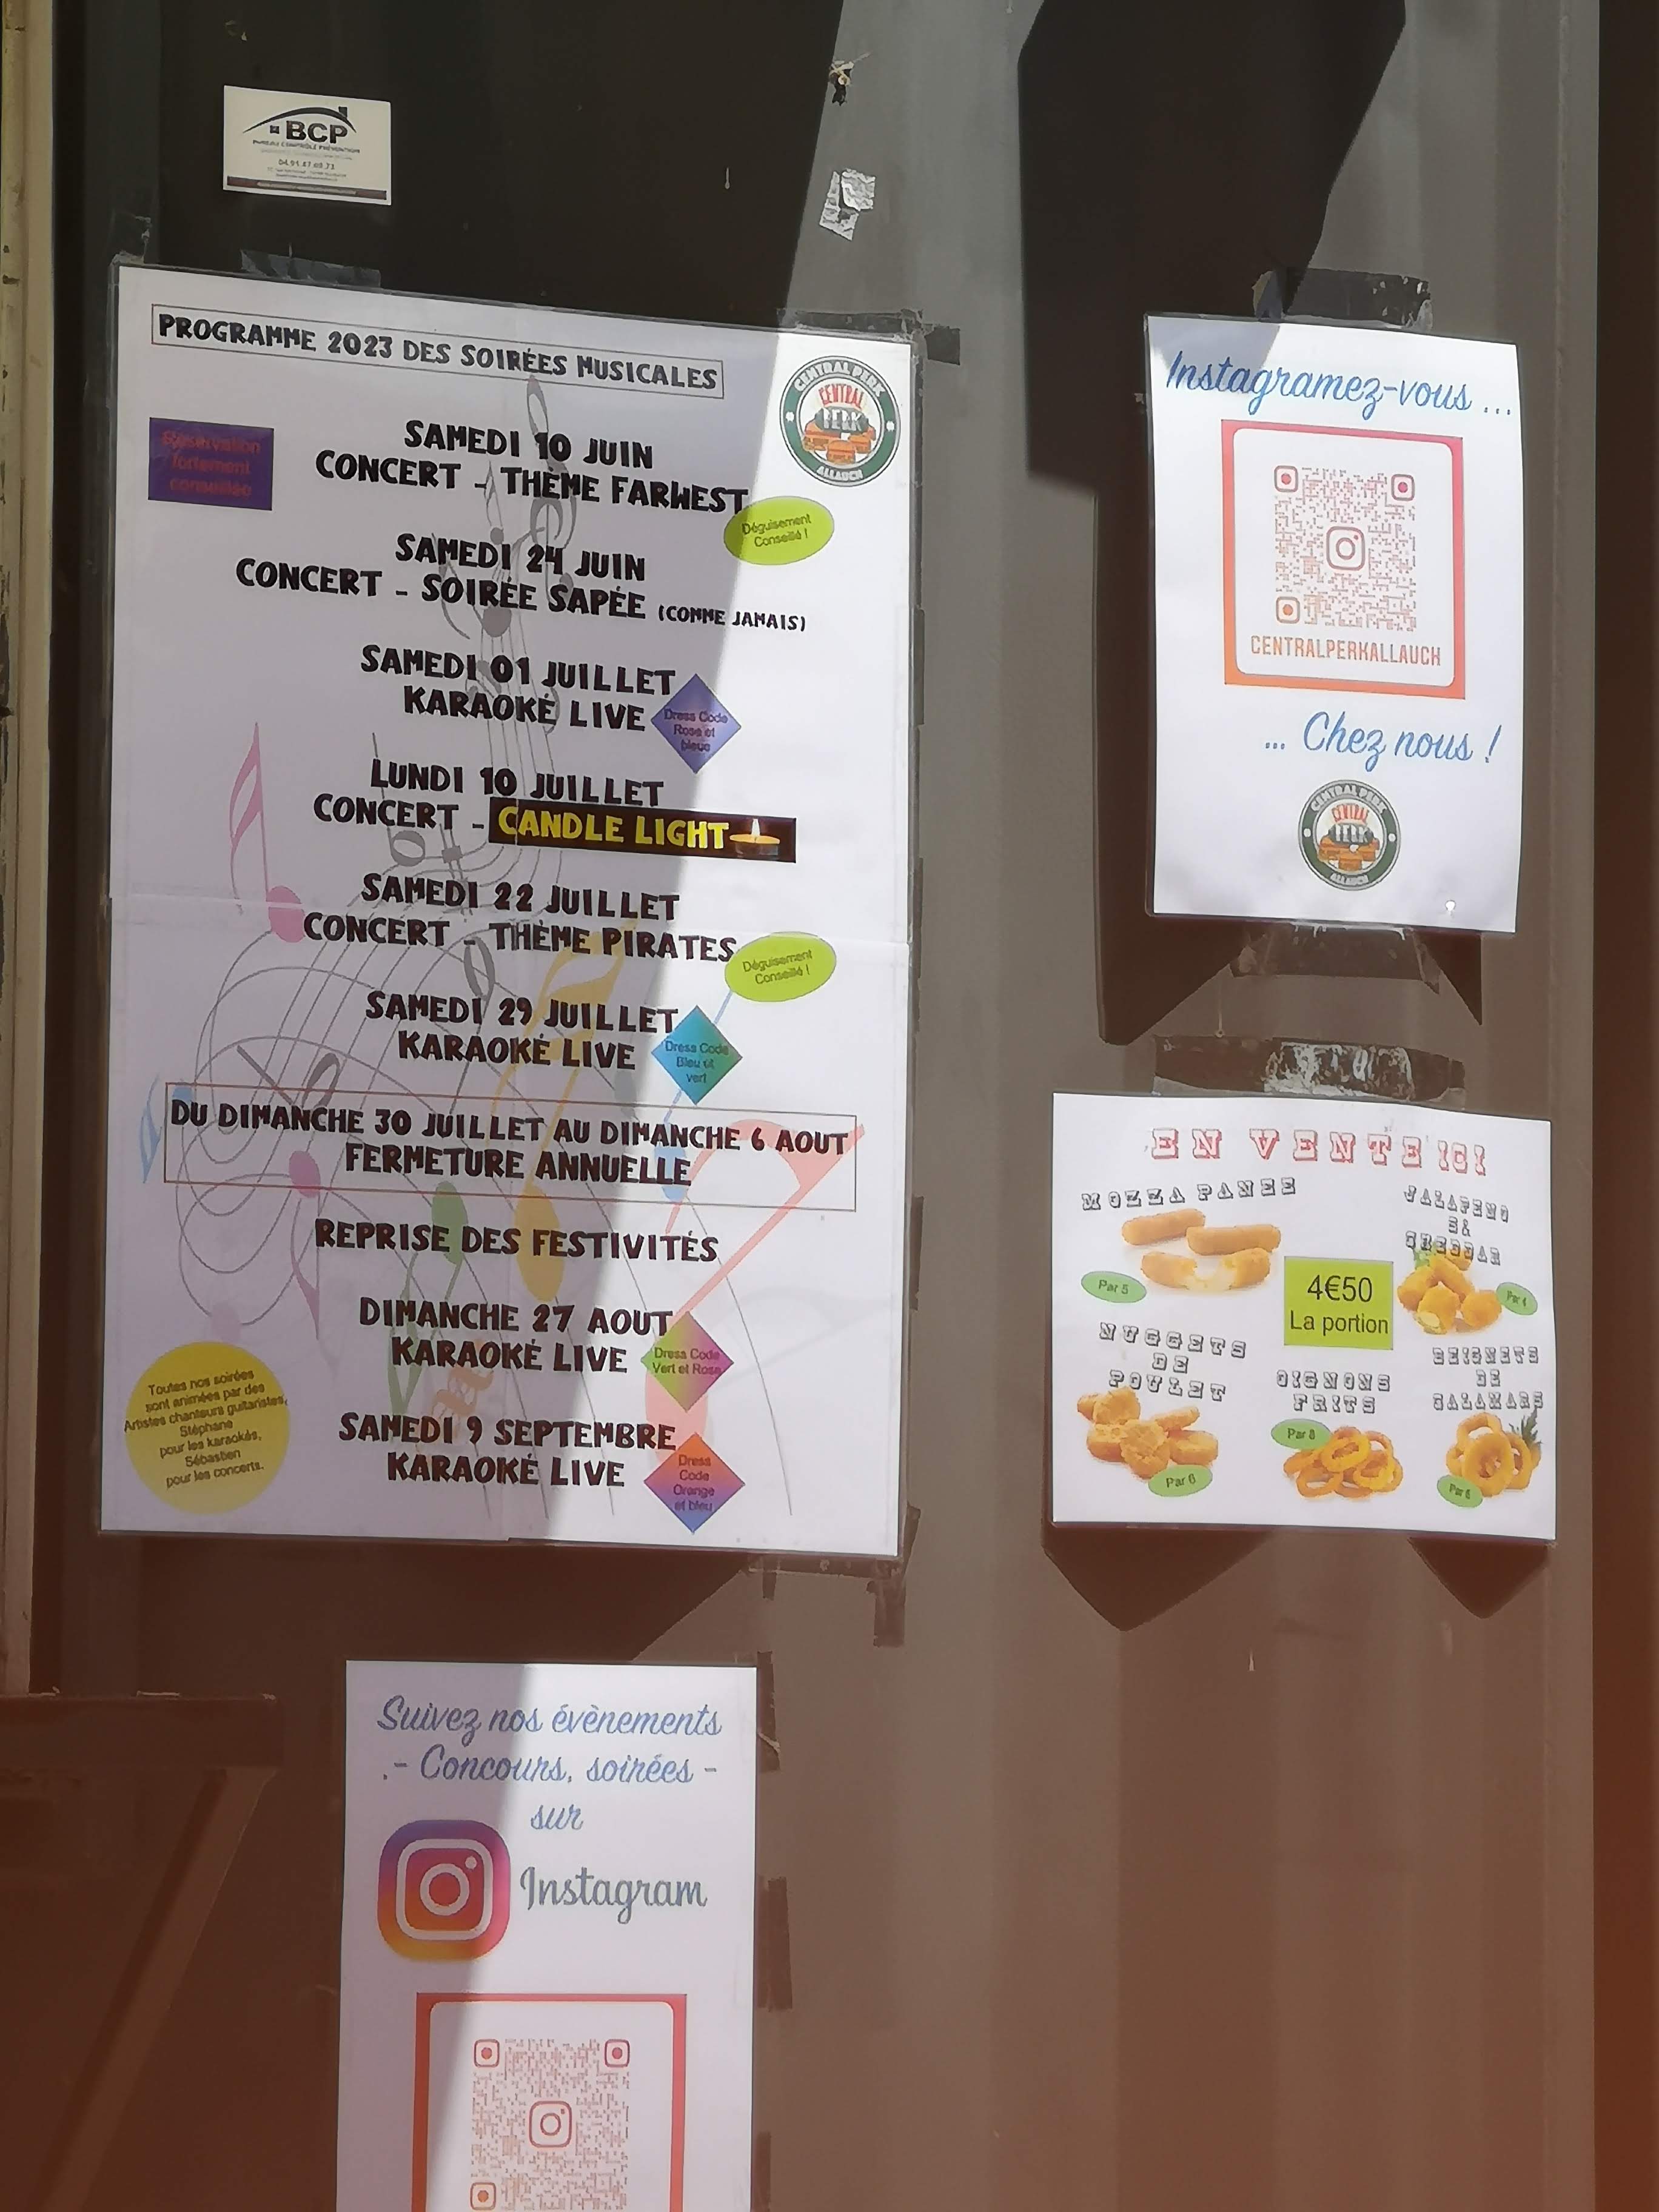 BCP
BUREAU CONTRÔLE PRÉVENTION
PROGRAMME 2023 DES SOIRÉES MUSICALES
CENTRAL PERK
CENTRAL
PERK
ALLAUCH
Réservation
fortement
conseillée
SAMEDI 10 JUIN
CONCERT - THÈME FARWEST
Déguisement
Conseillé !
SAMEDI 24 JUIN
CONCERT - SOIRÉE SAPÉE (COMME JAMAIS)
SAMEDI 01 JUILLET
KARAOKÉ LIVE
Dress Code
Rose et
bleue
LUNDI 10 JUILLET
CONCERT - CANDLE LIGHT
SAMEDI 22 JUILLET
CONCERT - THÈME PIRATES
Déguisement
Conseillé !
SAMEDI 29 JUILLET
KARAOKÉ LIVE
Dress Code
Bleu et
vert
DU DIMANCHE 30 JUILLET AU DIMANCHE 6 AOUT
FERMETURE ANNUELLE
REPRISE DES FESTIVITÉS
DIMANCHE 27 AOUT
KARAOKÉ LIVE
Dress Code
Vert et Rose
SAMEDI 9 SEPTEMBRE
KARAOKÉ LIVE
Dress
Code
Orange
et bleu
Toutes nos soirées
sont animées par des
Artistes chanteurs guitaristes,
Stéphane
pour les karaokés,
Sébastien
pour les concerts.
Instagramez-vous ...
CENTRALPERKALLAUCH
... Chez nous !
CENTRAL PERK
CENTRAL
PERK
ALLAUCH
EN VENTE ICI
MOZZA PANEE
Par 5
JALAPENO
&
CHEDDAR
4€50
La portion
NUGGETS
DE
POULET
Par 6
OIGNONS
FRITS
Par 8
BEIGNETS
DE
CALAMARS
Suivez nos évènements
.- Concours, soirées -
sur
Instagram